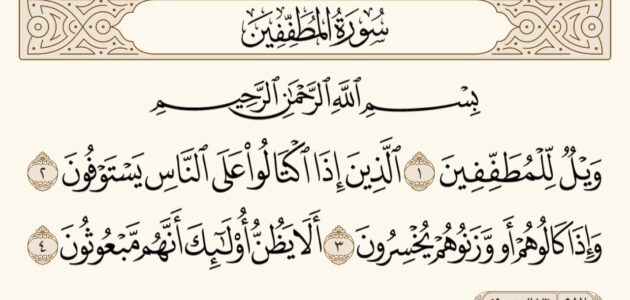 سُورَةُ المُطَفِّفِينَ
بِسْمِ ٱللَّهِ ٱلرَّحْمَٰنِ ٱلرَّحِيمِ
وَيْلٌ لِّلْمُطَفِّفِينَ ١ ٱلَّذِينَ إِذَا ٱكْتَالُوا۟ عَلَى ٱلنَّاسِ يَسْتَوْفُونَ ٢
وَإِذَا كَالُوهُمْ أَو وَّزَنُوهُمْ يُخْسِرُونَ ٣ أَلَا يَظُنُّ أُو۟لَٰٓئِكَ أَنَّهُم مَّبْعُوثُونَ ٤